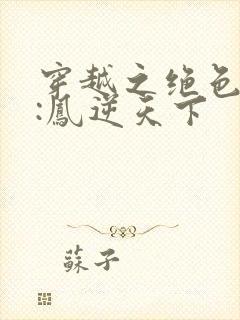 穿越之绝色
:鳳逆天下
蘇子